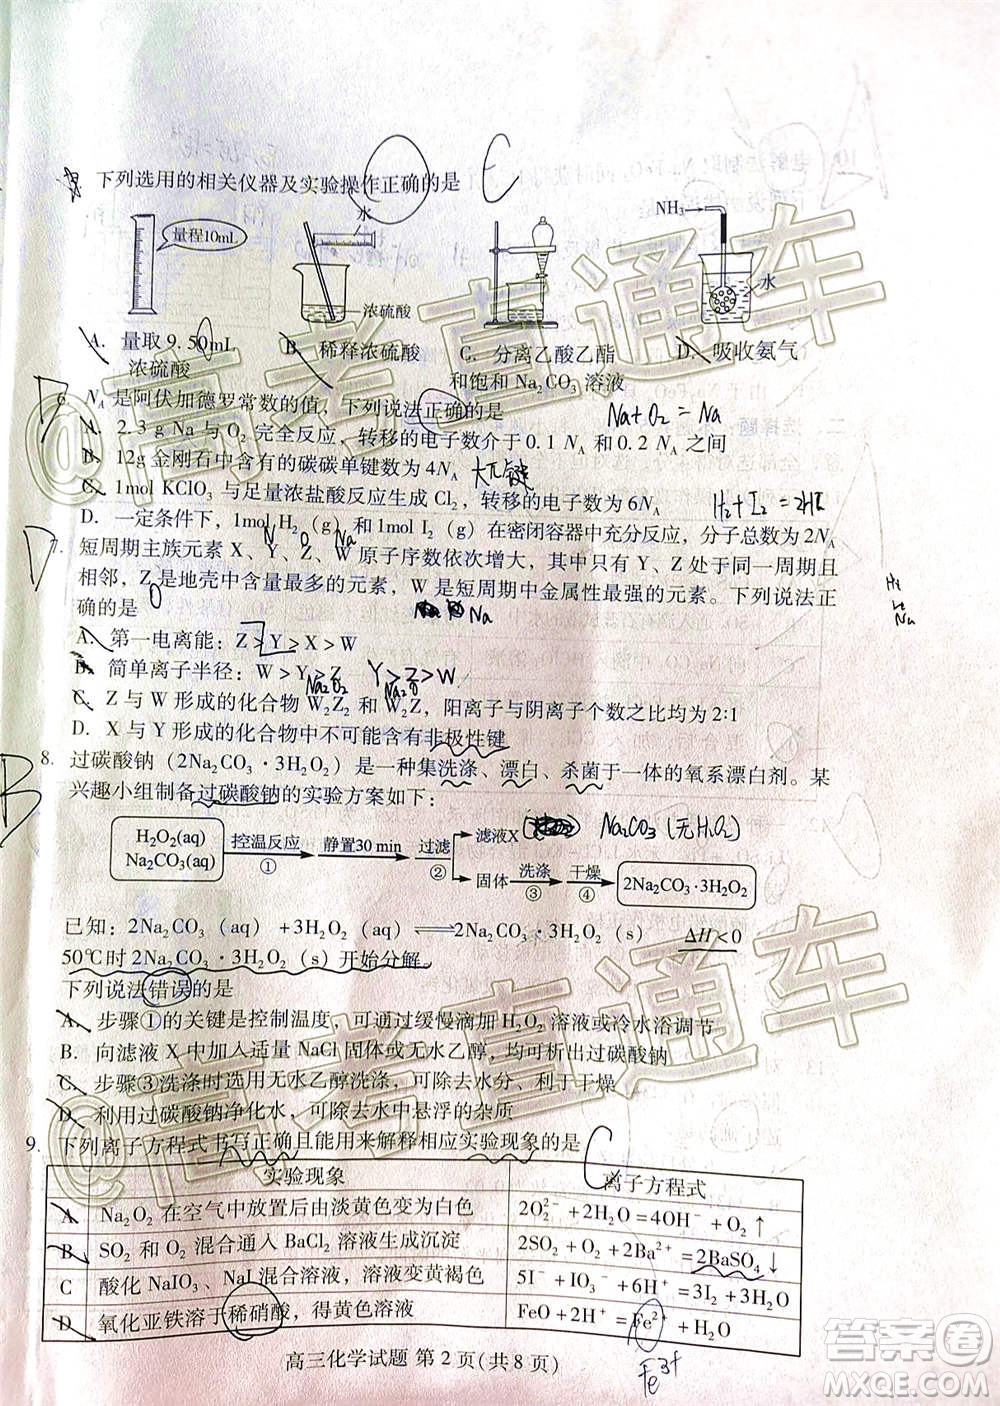 下列选用的相关仪器及实验操作正确的是
量程10mL
水
浓硫酸
NH₃
水
A. 量取9.50mL浓硫酸
B. 稀释浓硫酸
C. 分离乙酸乙酯和饱和Na₂CO₃溶液
D. 吸收氨气
6. N_A 是阿伏加德罗常数的值，下列说法正确的是
Na+O₂=Na
A. 2.3g Na与O₂完全反应，转移的电子数介于0.1 N_A 和0.2 N_A 之间
B. 12g金刚石中含有的碳碳单键数为4N_A
大π键
C. 1mol KClO₃ 与足量浓盐酸反应生成Cl₂，转移的电子数为6N_A
H₂+I₂=2HI
D. 一定条件下，1mol H₂（g）和1mol I₂（g）在密闭容器中充分反应，分子总数为2N_A
N O Na
7. 短周期主族元素X、Y、Z、W原子序数依次增大，其中只有Y、Z处于同一周期且
相邻，Z是地壳中含量最多的元素，W是短周期中金属性最强的元素。下列说法正
确的是
O
Na
A. 第一电离能：Z＞Y＞X＞W
B. 简单离子半径：W＞Y＞Z
Y＞Z＞W
Na₂O₂ Na₂O
C. Z与W形成的化合物W₂Z₂、W₂Z，阳离子与阴离子个数之比均为2:1
D. X与Y形成的化合物中不可能含有非极性键
D
8. 过碳酸钠（2Na₂CO₃·3H₂O₂）是一种集洗涤、漂白、杀菌于一体的氧系漂白剂。某
兴趣小组制备过碳酸钠的实验方案如下：
B
H₂O₂(aq)
Na₂CO₃(aq)
控温反应
①
静置30 min
过滤
②
滤液X
Na₂CO₃(无H₂O₂)
固体
洗涤
③
干燥
④
2Na₂CO₃·3H₂O₂
已知：2Na₂CO₃（aq）+3H₂O₂（aq）⇌2Na₂CO₃·3H₂O₂（s） ΔH<0
50℃时2Na₂CO₃·3H₂O₂（s）开始分解
下列说法错误的是
A. 步骤①的关键是控制温度，可通过缓慢滴加H₂O₂溶液或冷水浴调节
B. 向滤液X中加入适量NaCl固体或无水乙醇，均可析出过碳酸钠
C. 步骤③洗涤时选用无水乙醇洗涤，可除去水分、利于干燥
D. 利用过碳酸钠净化水，可除去水中悬浮的杂质
9. 下列离子方程式书写正确且能用来解释相应实验现象的是
C
实验现象 离子方程式
A Na₂O₂在空气中放置后由淡黄色变为白色 2O₂²⁻+2H₂O=4OH⁻+O₂↑
B SO₂和O₂混合通入BaCl₂溶液生成沉淀 2SO₂+O₂+2Ba²⁺=2BaSO₄↓
C 酸化NaIO₃、NaI混合溶液，溶液变黄褐色 5I⁻+IO₃⁻+6H⁺=3I₂+3H₂O
D 氧化亚铁溶于稀硝酸，得黄色溶液 FeO+2H⁺=Fe²⁺+H₂O
Fe³⁺
高三化学试题 第2页(共8页)
@高考直通车
@高考直通车
答案圈
MXQE.COM